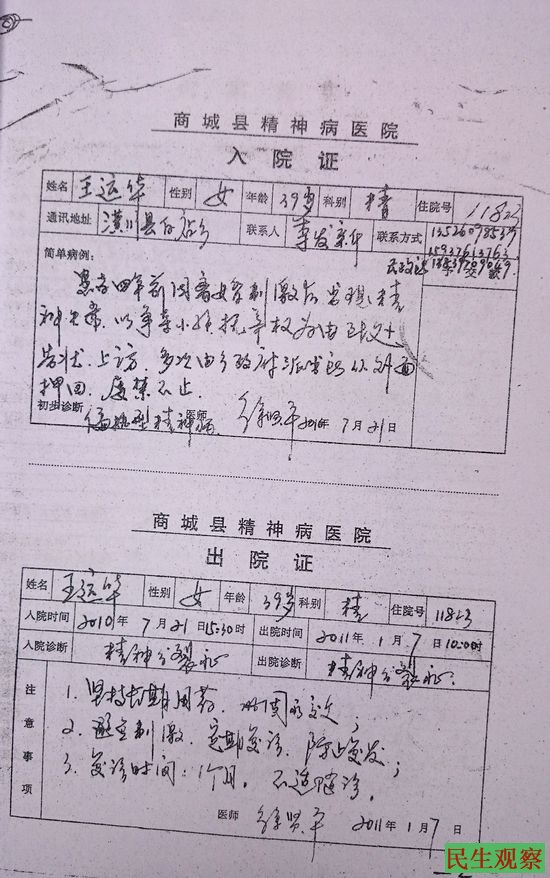 商城县精神病医院
入院证
姓名 王运华 性别 女 年龄 39岁 科别 精 住院号 11823
通讯地址 潢川县 联系人 李发 联系方式
简单病例:
患者四年前因离婚刺激后出现精
神失常,以争夺小孩抚养权为由
告状、上访,多次由乡政府派出所从外面
押回,屡禁不止。
初步诊断 偏执型精神病 医师 2010年7月21日
商城县精神病医院
出院证
姓名 王运华 性别 女 年龄 39岁 科别 精 住院号 11823
入院时间 2010年7月21日15:30时 出院时间 2011年1月7日10:00时
入院诊断 精神分裂症 出院诊断 精神分裂症.
注意事项
1. 坚持长期用药,
2. 避免刺激,定期复诊,防止复发;
3. 复诊时间:1个月,不适随诊。
医师 2011年1月7日
民生观察